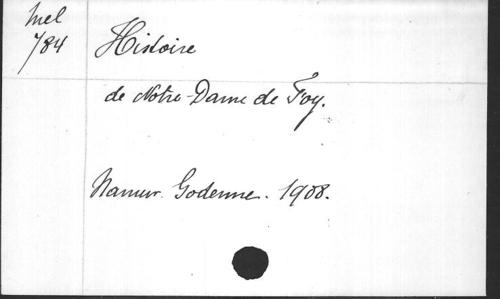 Mel
784
Histoire
de Notre-Dame de Foy.
Namur. Godenne. 1908.